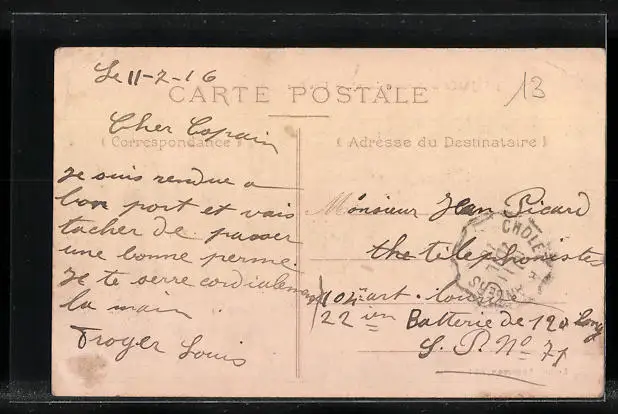 Le 11-2-16
13
CARTE POSTALE
Cher Copain
( Correspondance )
( Adresse du Destinataire )
Je suis rendue a
bon port et vais
tacher de passer
une bonne perme.
Je te serre cordialement
la main
Troger Louis
Monsieur Jean Picard
the telephonistes
104 art. lourde
22 ien Batterie de 120 Long
S. P. No 71
CHOLET
ANGERS